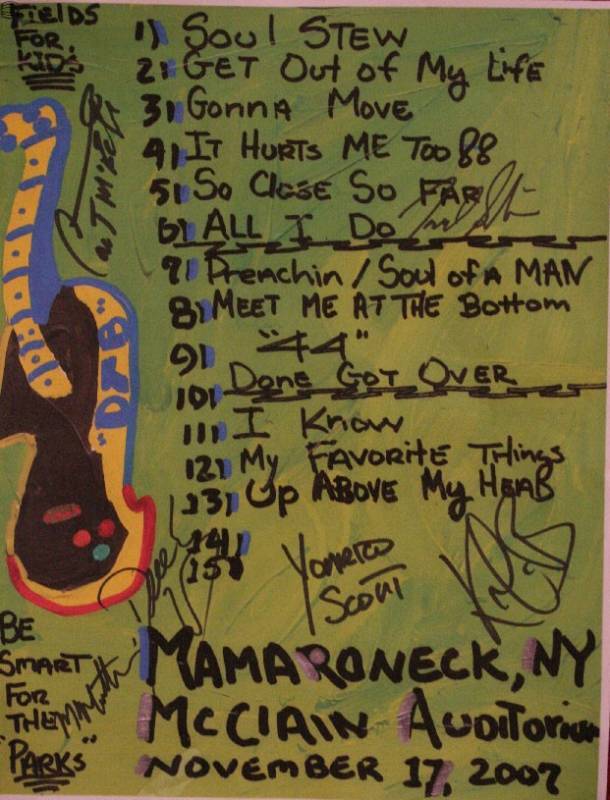 FIELDS
FOR
KIDS
1) SOUL STEW
2) GET Out of My Life
3) Gonna Move
4) IT HURTS ME TOO
5) So Close So FAR
6) ALL I Do
7) Prenchin / Soul of A MAN
8) MEET ME AT THE Bottom
9) "44"
10) DONE GOT OVER
11) I Know
12) My FAVORITE THings
13) Up ABOVE My HEAD
14)
15)
"DTB"
YONRICO
SCOTT
BE
SMART
FOR
THEM
"PARKS"
MAMARONECK, NY
McCLAIN AUDITORIUM
NOVEMBER 17, 2007